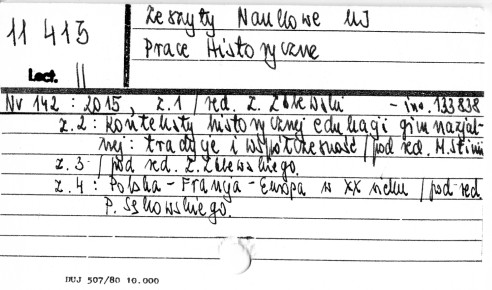 11 415
Lect. II
Zeszyty Naukowe UJ
Prace Historyczne
Nr 142 : 2015, z. 1 / red. Z. Zblewski - inw. 133838
z. 2 : Konteksty historycznej edukacji gimnazjal-
nej : tradycje i współczesność / pod red. M. Stinii
z. 3 / pod red. Z. Zblewskiego.
z. 4 : Polska - Francja - Europa w XX wieku / pod red.
P. Sękowskiego.
DUJ 507/80 10.000